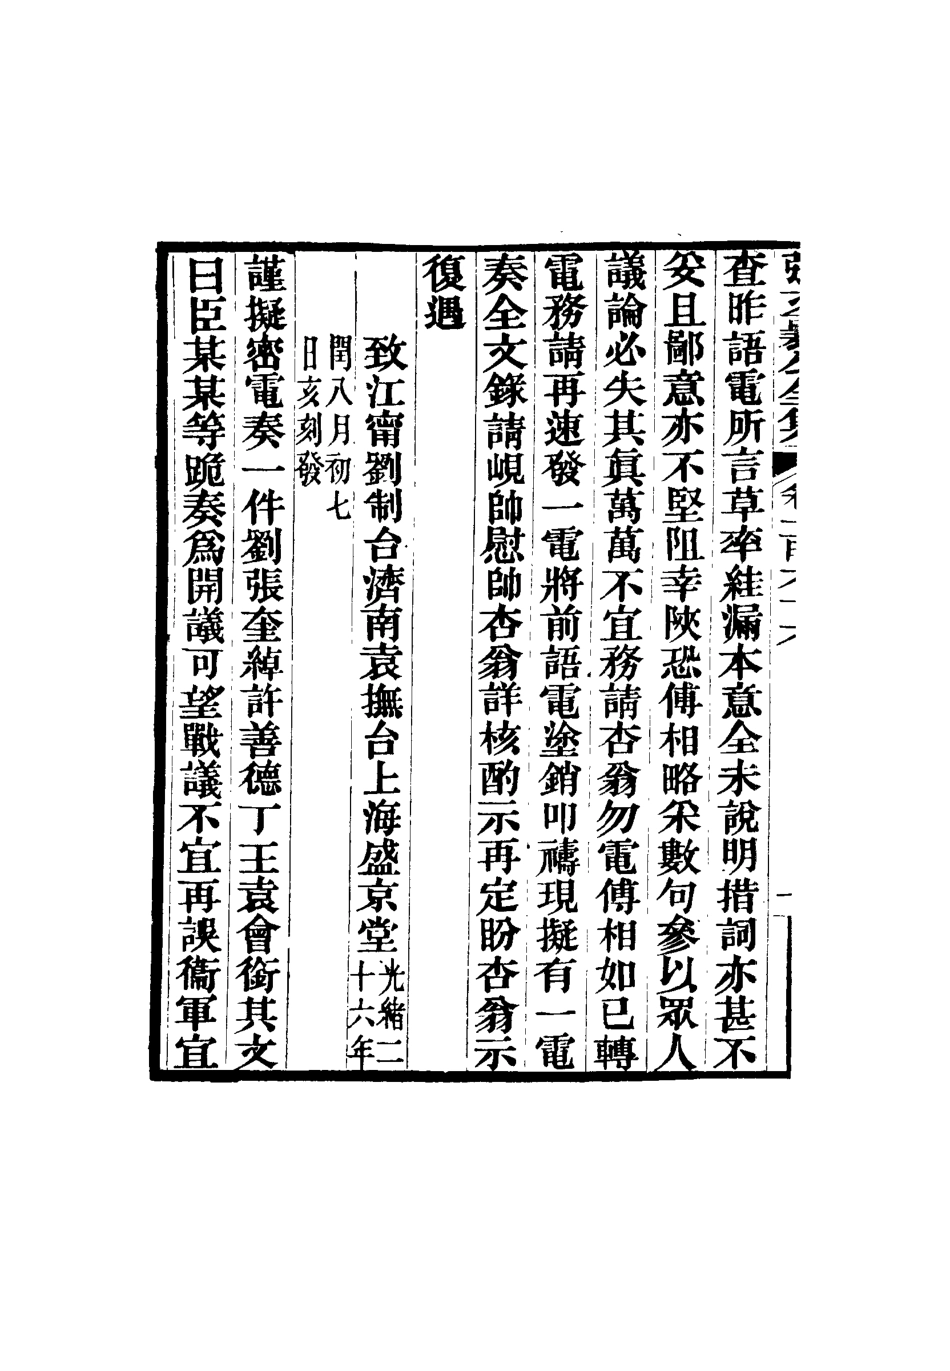 張文襄公全集 卷一百六十六 一
查昨語電所言草率絓漏本意全未說明措詞亦甚不
妥且鄙意亦不堅阻幸陝恐傅相略采數句參以眾人
議論必失其眞萬萬不宜務請杏翁勿電傅相如已轉
電務請再速發一電將前語電塗銷叩禱現擬有一電
奏全文錄請峴帥慰帥杏翁詳核酌示再定盼杏翁示
復遇
致江甯劉制台濟南袁撫台上海盛京堂光緒二十六年
閏八月初七
日亥刻發
謹擬密電奏一件劉張奎綽許善德丁王袁會銜其文
曰臣某某等跪奏爲開議可望戰議不宜再誤衞軍宜